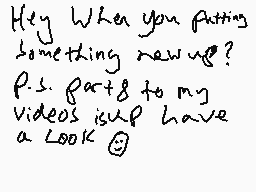 Hey When you putting
something new up?
P.S. part 8 to my
videos is up have
a Look